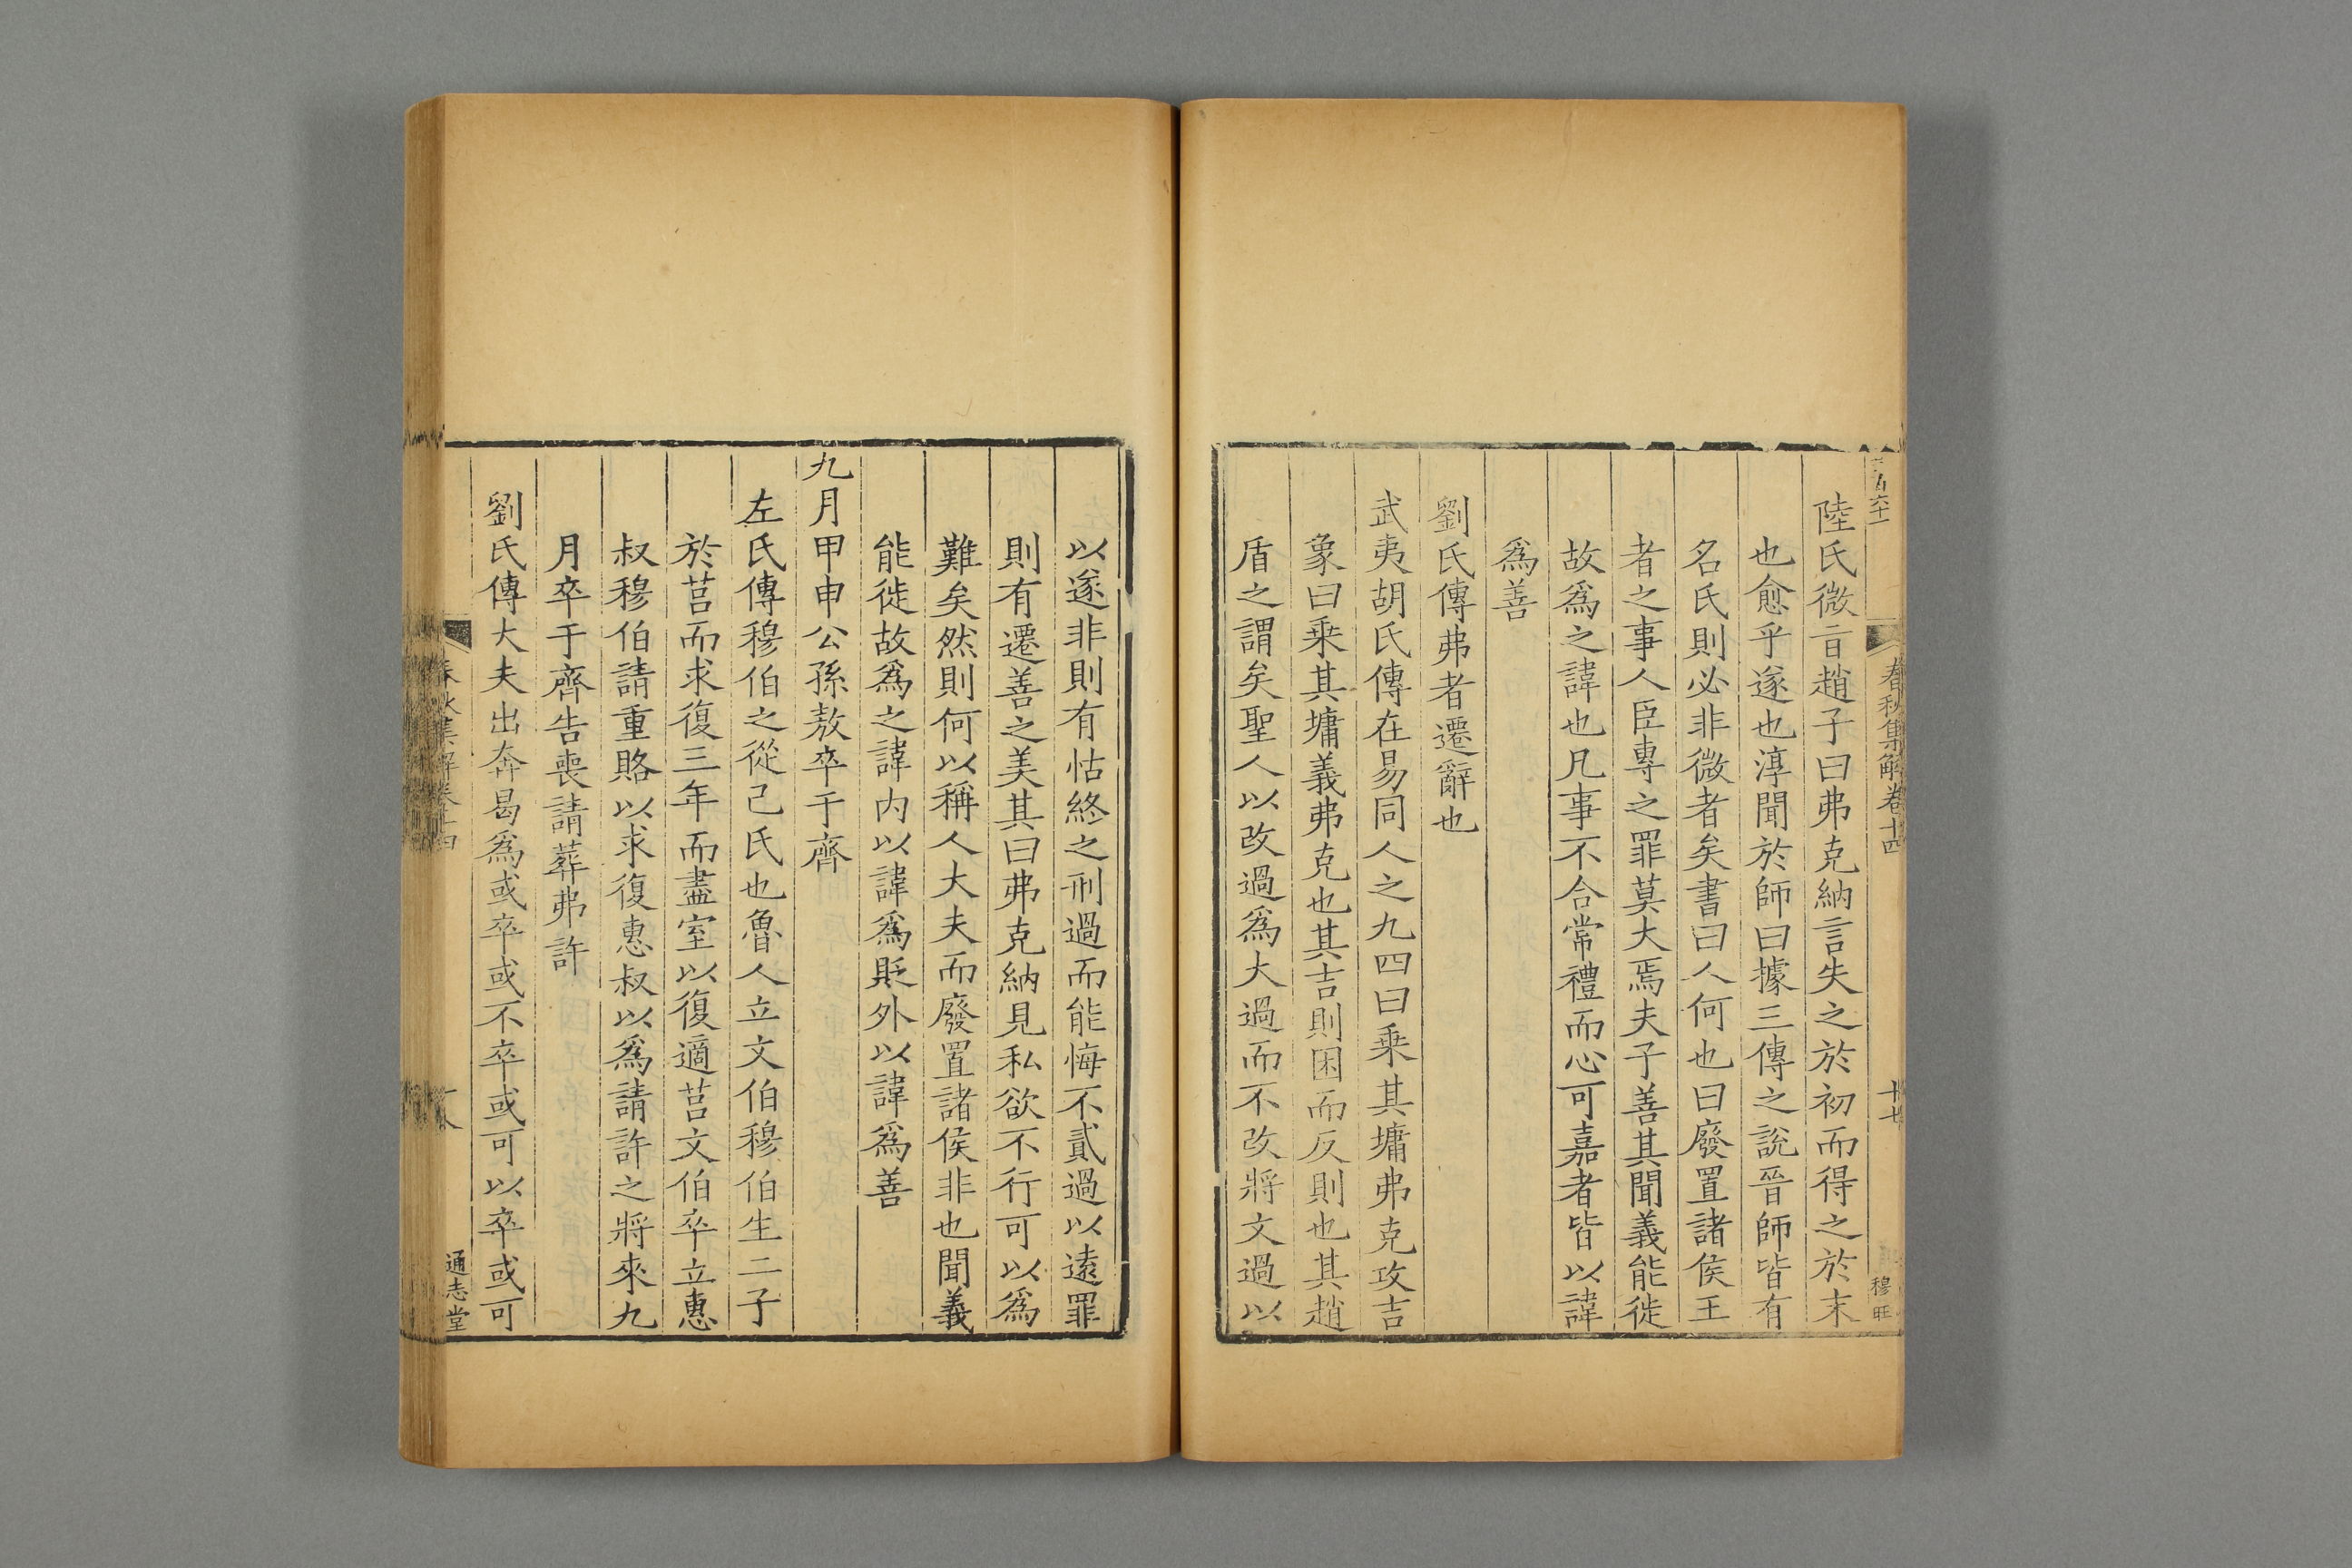 春秋集解卷十四
十七
穆旺
陸氏微旨趙子曰弗克納言失之於初而得之於末
也愈乎遂也淳聞於師曰據三傳之說晉師皆有
名氏則必非微者矣書曰人何也曰廢置諸侯王
者之事人臣專之罪莫大焉夫子善其聞義能徙
故爲之諱也凡事不合常禮而心可嘉者皆以諱
爲善
劉氏傳弗者遷辭也
武夷胡氏傳在易同人之九四曰乗其墉弗克攻吉
象曰乗其墉義弗克也其吉則困而反則也其趙
盾之謂矣聖人以改過爲大過而不改將文過以
以遂非則有怙終之刑過而能悔不貳過以遠罪
則有遷善之美其曰弗克納見私欲不行可以爲
難矣然則何以稱人大夫而廢置諸侯非也聞義
能徙故爲之諱内以諱爲貶外以諱爲善
九月甲申公孫敖卒于齊
左氏傳穆伯之從己氏也魯人立文伯穆伯生二子
於莒而求復三年而盡室以復適莒文伯卒立惠
叔穆伯請重賂以求復惠叔以爲請許之將來九
月卒于齊告喪請葬弗許
劉氏傳大夫出奔曷爲或卒或不卒或可以卒或可
春秋集解卷十四
通志堂